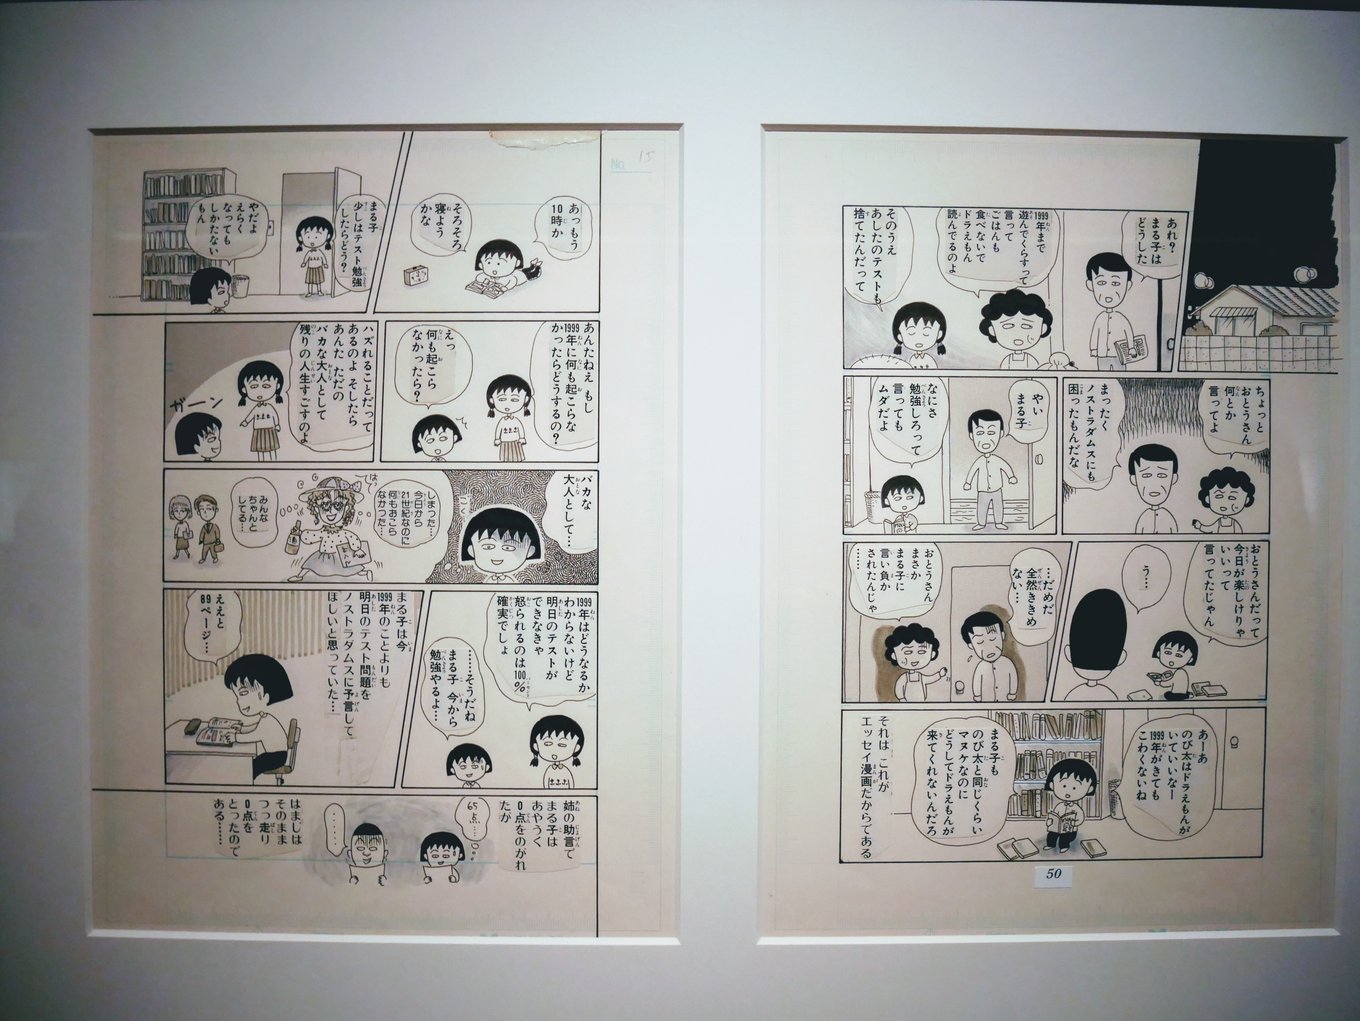 あれ？
まる子は
どうした
1999年まで
遊んでくらすって
言って
ごはんも
食べないで
ドラえもん
読んでるのよ
そのうえ
あしたのテストも
捨てたんだって
ちょっと
おとうさん
何とか
言ってよ
まったく
ノストラダムスにも
困ったもんだな
やい
まる子
なにさ
勉強しろって
言っても
ムダだよ
おとうさんだって
今日が楽しけりゃ
いいって
言ってたじゃん
う…
…だめだ
全然ききめ
ない…
おとうさん
まさか
まる子に
言い負か
されたんじゃ
……
あーあ
のび太はドラえもんが
いていいなー
1999年がきても
こわくないね
まる子も
のび太と同じくらい
マヌケなのに
どうしてドラえもんが
来てくれないんだろ
それは これが
エッセイ漫画だからである
50
No. 15
あっもう
10時か
そろそろ
寝よう
かな
まる子
少しはテスト勉強
したらどう？
やだよ
えらく
なっても
しかたない
もん
あんたねえ もし
1999年に何も起こらな
かったらどうするの？
えっ
何も起こら
なかったら？
ハズれることだって
あるのよ そしたら
あんた ただの
バカな大人として
残りの人生すごすのよ
ガーン
バカな
大人として…
しまった…
今日から
21世紀なのに
何もおこら
なかった…
はっ
みんな
ちゃんと
してる…
1999年はどうなるか
わからないけど
明日のテストが
できなきゃ
怒られるのは100%
確実でしょ
……そうだね
まる子 今から
勉強やるよ…
まる子は今
1999年のことよりも
明日のテスト問題を
ノストラダムスに予言して
ほしいと思っていた…
ええと
89ページ…
姉の助言で
まる子は
あやうく
0点をのがれ
たが
65点…
……
はまじは
そのまま
つっ走り
0点を
とったので
ある……